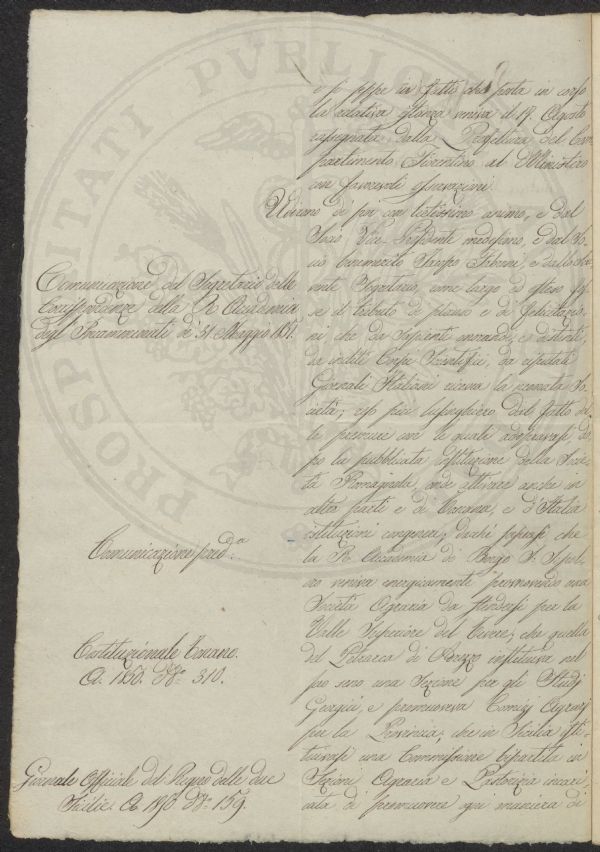 PROSPERITATI PVBLICAE
e si seppe in fatto che posta in corso
la relativa istanza veniva il 19. Agosto
rassegnata dalla Prefettura del Com
partimento Fiorentino al Ministero
con favorevoli osservazioni
Udirono di poi con lietissimo animo, e dal
Socio Vice-Presidente medesimo, e dal So
cio benemerito Fabroni e dallo
Segretario, come largo si
se il tributo di plauso e di felicitazio
ni che da Sapienti onorandi, e distinti,
da inclite Corpi Scientifici, da riputati
Giornali Italiani riceva la premiata So
cietà; più lusinghiero dal fatto del
le premure con le quale adopravasi do
po la pubblicata istituzione della Socie
tà Romagnola, onde attivare anche in
altre parti e di Toscana, e d'Italia
istituzioni congeneri; dacchè seppesi che
la R. Accademia di Borgo S. Sepol
cro veniva energicamente promovendo una
Società Agraria da stendersi per la
Valle Superiore del Tevere; che quella
del Petrarca di Arezzo instituiva nel
suo seno una Sezione per gli Studj
Georgici, e promuoveva Comizj Agrarj
per la Provincia; che in Sicilia isti
tuivasi una Commissione bipartita in
Sezioni Agraria e Pastorizia incari
cata di promuovere ogni maniera di
Comunicazione del Segretario delle
Corrispondenze della R. Accademia
degl'Incamminati de' 31. Maggio 1851.
Comunicazione pred.a
Costituzionale Toscano.
A. 1850. N.o 310.
Giornale Officiale del Regno delle due
Sicilie. A. 1850 N.o 159.